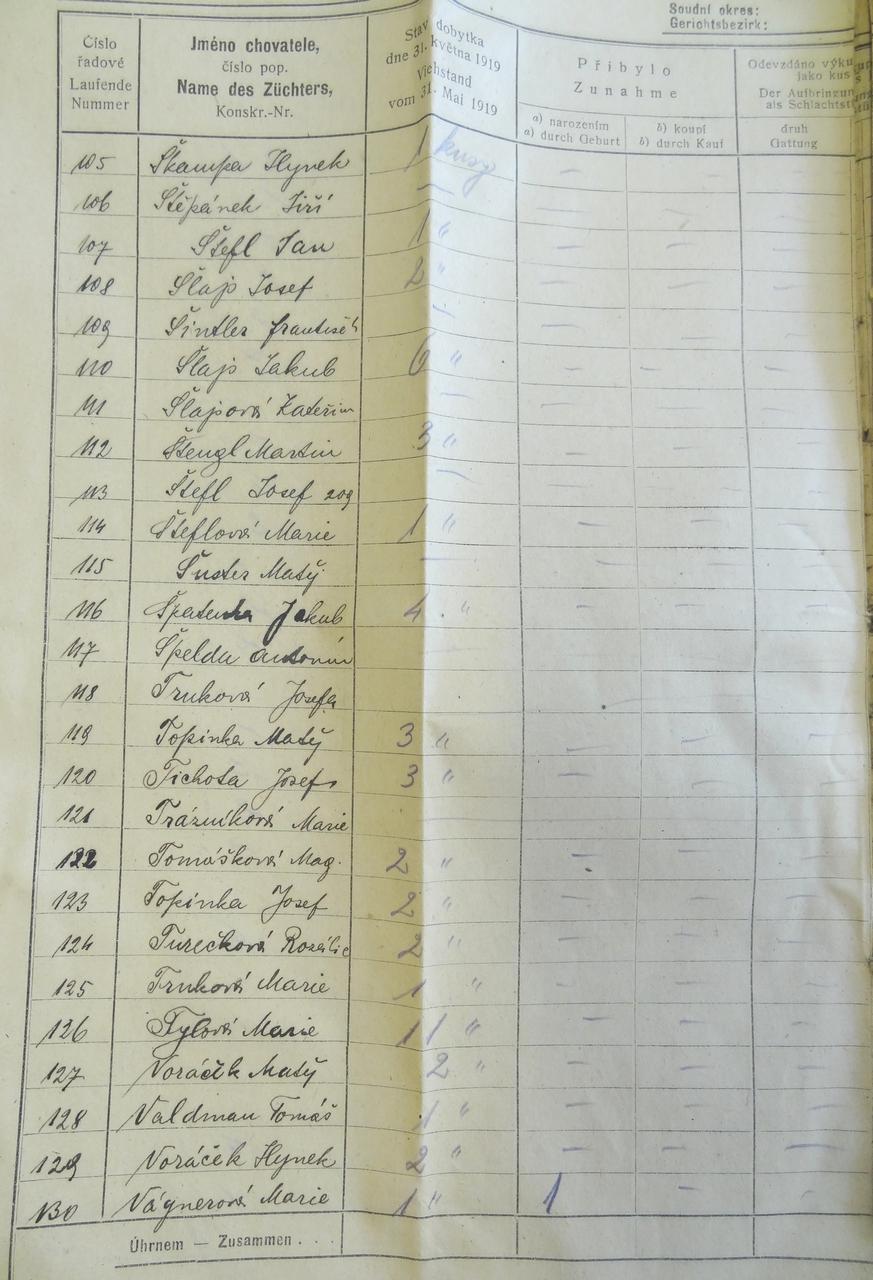 Soudní okres:
Gerichtsbezirk:
Číslo řadové Laufende Nummer
Jméno chovatele, číslo pop. Name des Züchters, Konskr.-Nr.
Stav dobytka dne 31. května 1919 Viehstand vom 31. Mai 1919
Přibylo Zunahme
a) narozením a) durch Geburt
b) koupí b) durch Kauf
Odevzdáno jako Der Aufbringun als
druh Gattung
105 Škampa Hynek 1 kusy — —
106 Štěpánek Jiří —
107 Štefl Jan 1 " — — —
108 Šlajs Josef 2 " — — —
109 Šintler František — —
110 Šlajs Jakub 6 " — — —
111 Šlajsová Kateřin — —
112 Štengl Martin 3 " — — —
113 Štefl Josef 209 —
114 Šteflová Marie 1 " — — —
115 Šuster Matěj —
116 Špatenka Jakub 4 " — — —
117 Špelda Antonín
118 Trnková Josefa
119 Topinka Matěj 3 " — — —
120 Tichota Josef 3 " — — —
121 Trázníková Marie
122 Tomášková Mag. 2 " — — —
123 Topinka Josef 2 " — — —
124 Turečková Rozálie 2 " — — —
125 Trnková Marie 1 " — — —
126 Tylová Marie 11 " — — —
127 Voráček Matěj 2 " — — —
128 Valdman Tomáš 1 " — — —
129 Voráček Hynek 2 " — — —
130 Vágnerová Marie 1 " 1 — —
Úhrnem — Zusammen . . .